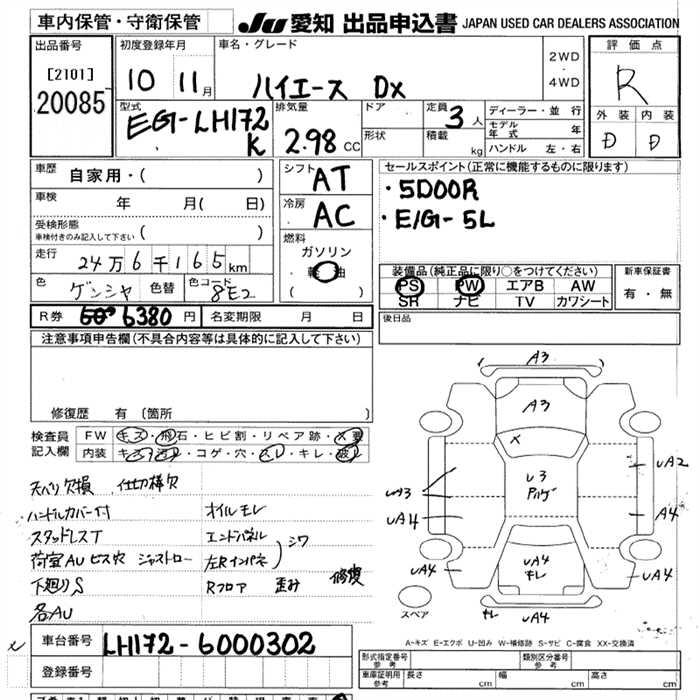 車内保管・守衛保管
JU 愛知 出品申込書 JAPAN USED CAR DEALERS ASSOCIATION
出品番号
[2101]
20085
初度登録年月
10 11月
車名・グレード
ハイエース DX
2WD
・
4WD
評価点
R
外装 内装
D D
型式
EG-LH172K
排気量
2.98 CC
ドア
形状
定員 3人
積載 kg
ディーラー・並行
モデル年式 年
ハンドル 左・右
車歴
自家用・( )
車検
年 月( 日)
受検形態
車検付きのみ記入して下さい ( )
走行
24万6千165km
色
ゲンシャ
色替
色コード
8E2
シフト
AT
冷房
AC
燃料
ガソリン
軽油
( )
セールスポイント(正常に機能するものに限ります)
・5DOOR
・E/G-5L
装備品(純正品に限り○をつけてください)
PS PW エアB AW
SR ナビ TV カワシート
新車保証書
有・無
R券 6380円
名変期限 月 日
後日品
注意事項申告欄(不具合内容等は具体的に記入して下さい)
修復歴 有 〔箇所 〕
検査員
記入欄
FW キズ・飛石・ヒビ割・リペア跡・X要
内装 キズ・汚レ・コゲ・穴・スレ・キレ・破レ
天ベリ欠損 仕切棒欠
ハンドルカバー付 オイルモレ
スタッドレスT エンドパネル
荷室AU ビス穴 ジャストロー 左Rインパネ シワ
下廻りS Rフロア 歪み 修復
各AU
A3
A3
X
U3
UA3
UA2
UA4
A4
UA4
UA4
キレ
UA4
UA4
キレ
スペア
A-キズ E-エクボ U-凹み W-補修跡 S-サビ C-腐食 XX-交換済
車台番号
LH172-6000302
登録番号
型式指定番号
参考
類別区分番号
参考
車庫証明用
参考
長さ cm
幅 cm
高さ cm